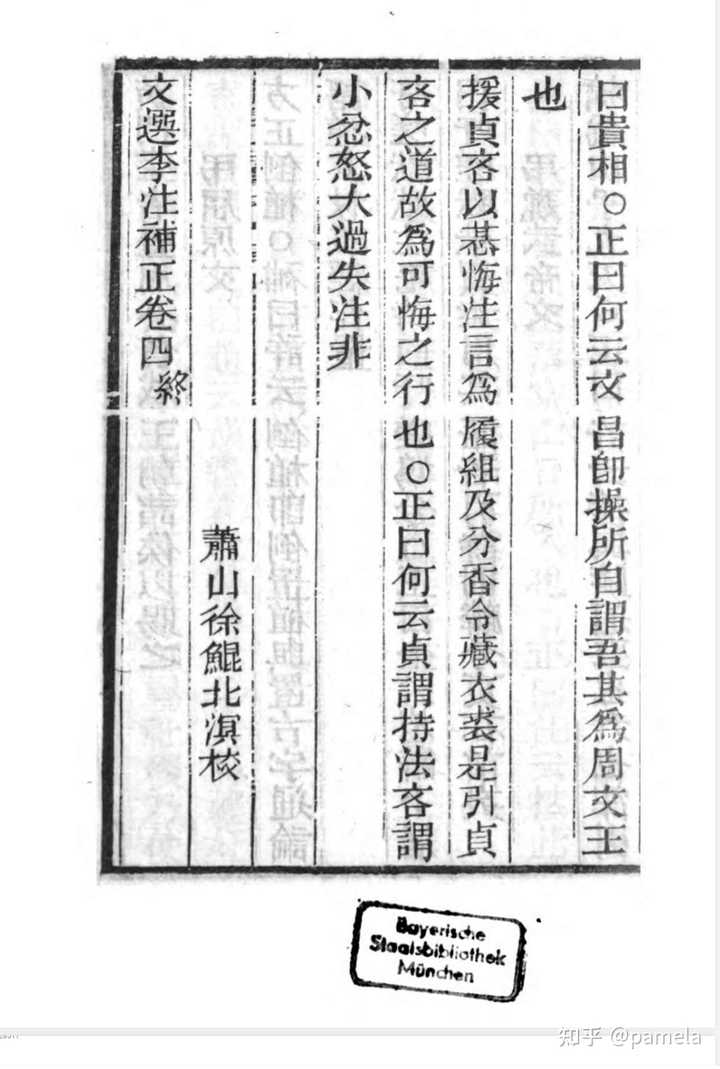 曰貴相○正曰何云文昌卽操所自謂吾其爲周文王
也
援貞吝以惎悔注言爲履組及分香令藏衣裘是引貞
吝之道故爲可悔之行也○正曰何云貞謂持法吝謂
小忿怒大過失注非
蕭山徐鯤北溟校
文選李注補正卷四終
Bayerische
Staatsbibliothek
München
知乎 @pamela